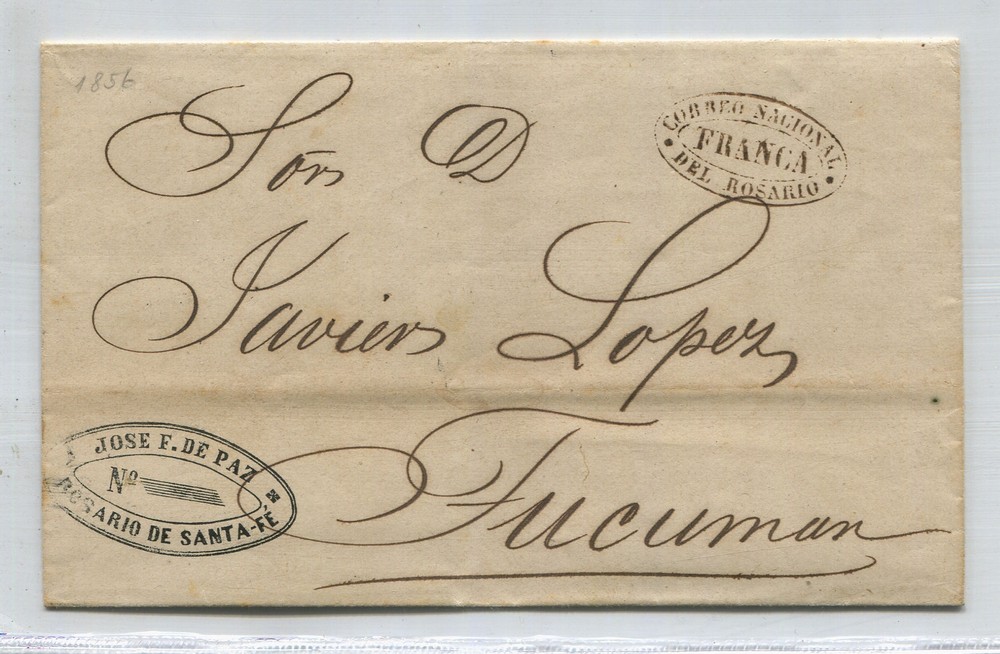 1856
Sõr D
CORREO NACIONAL
FRANCA
DEL ROSARIO
Javier Lopez
Tucuman
JOSE F. DE PAZ
Nº
ROSARIO DE SANTA-FÉ